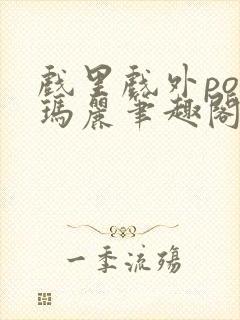 戲里戲外po
瑪麗筆趣閣
一季流殤